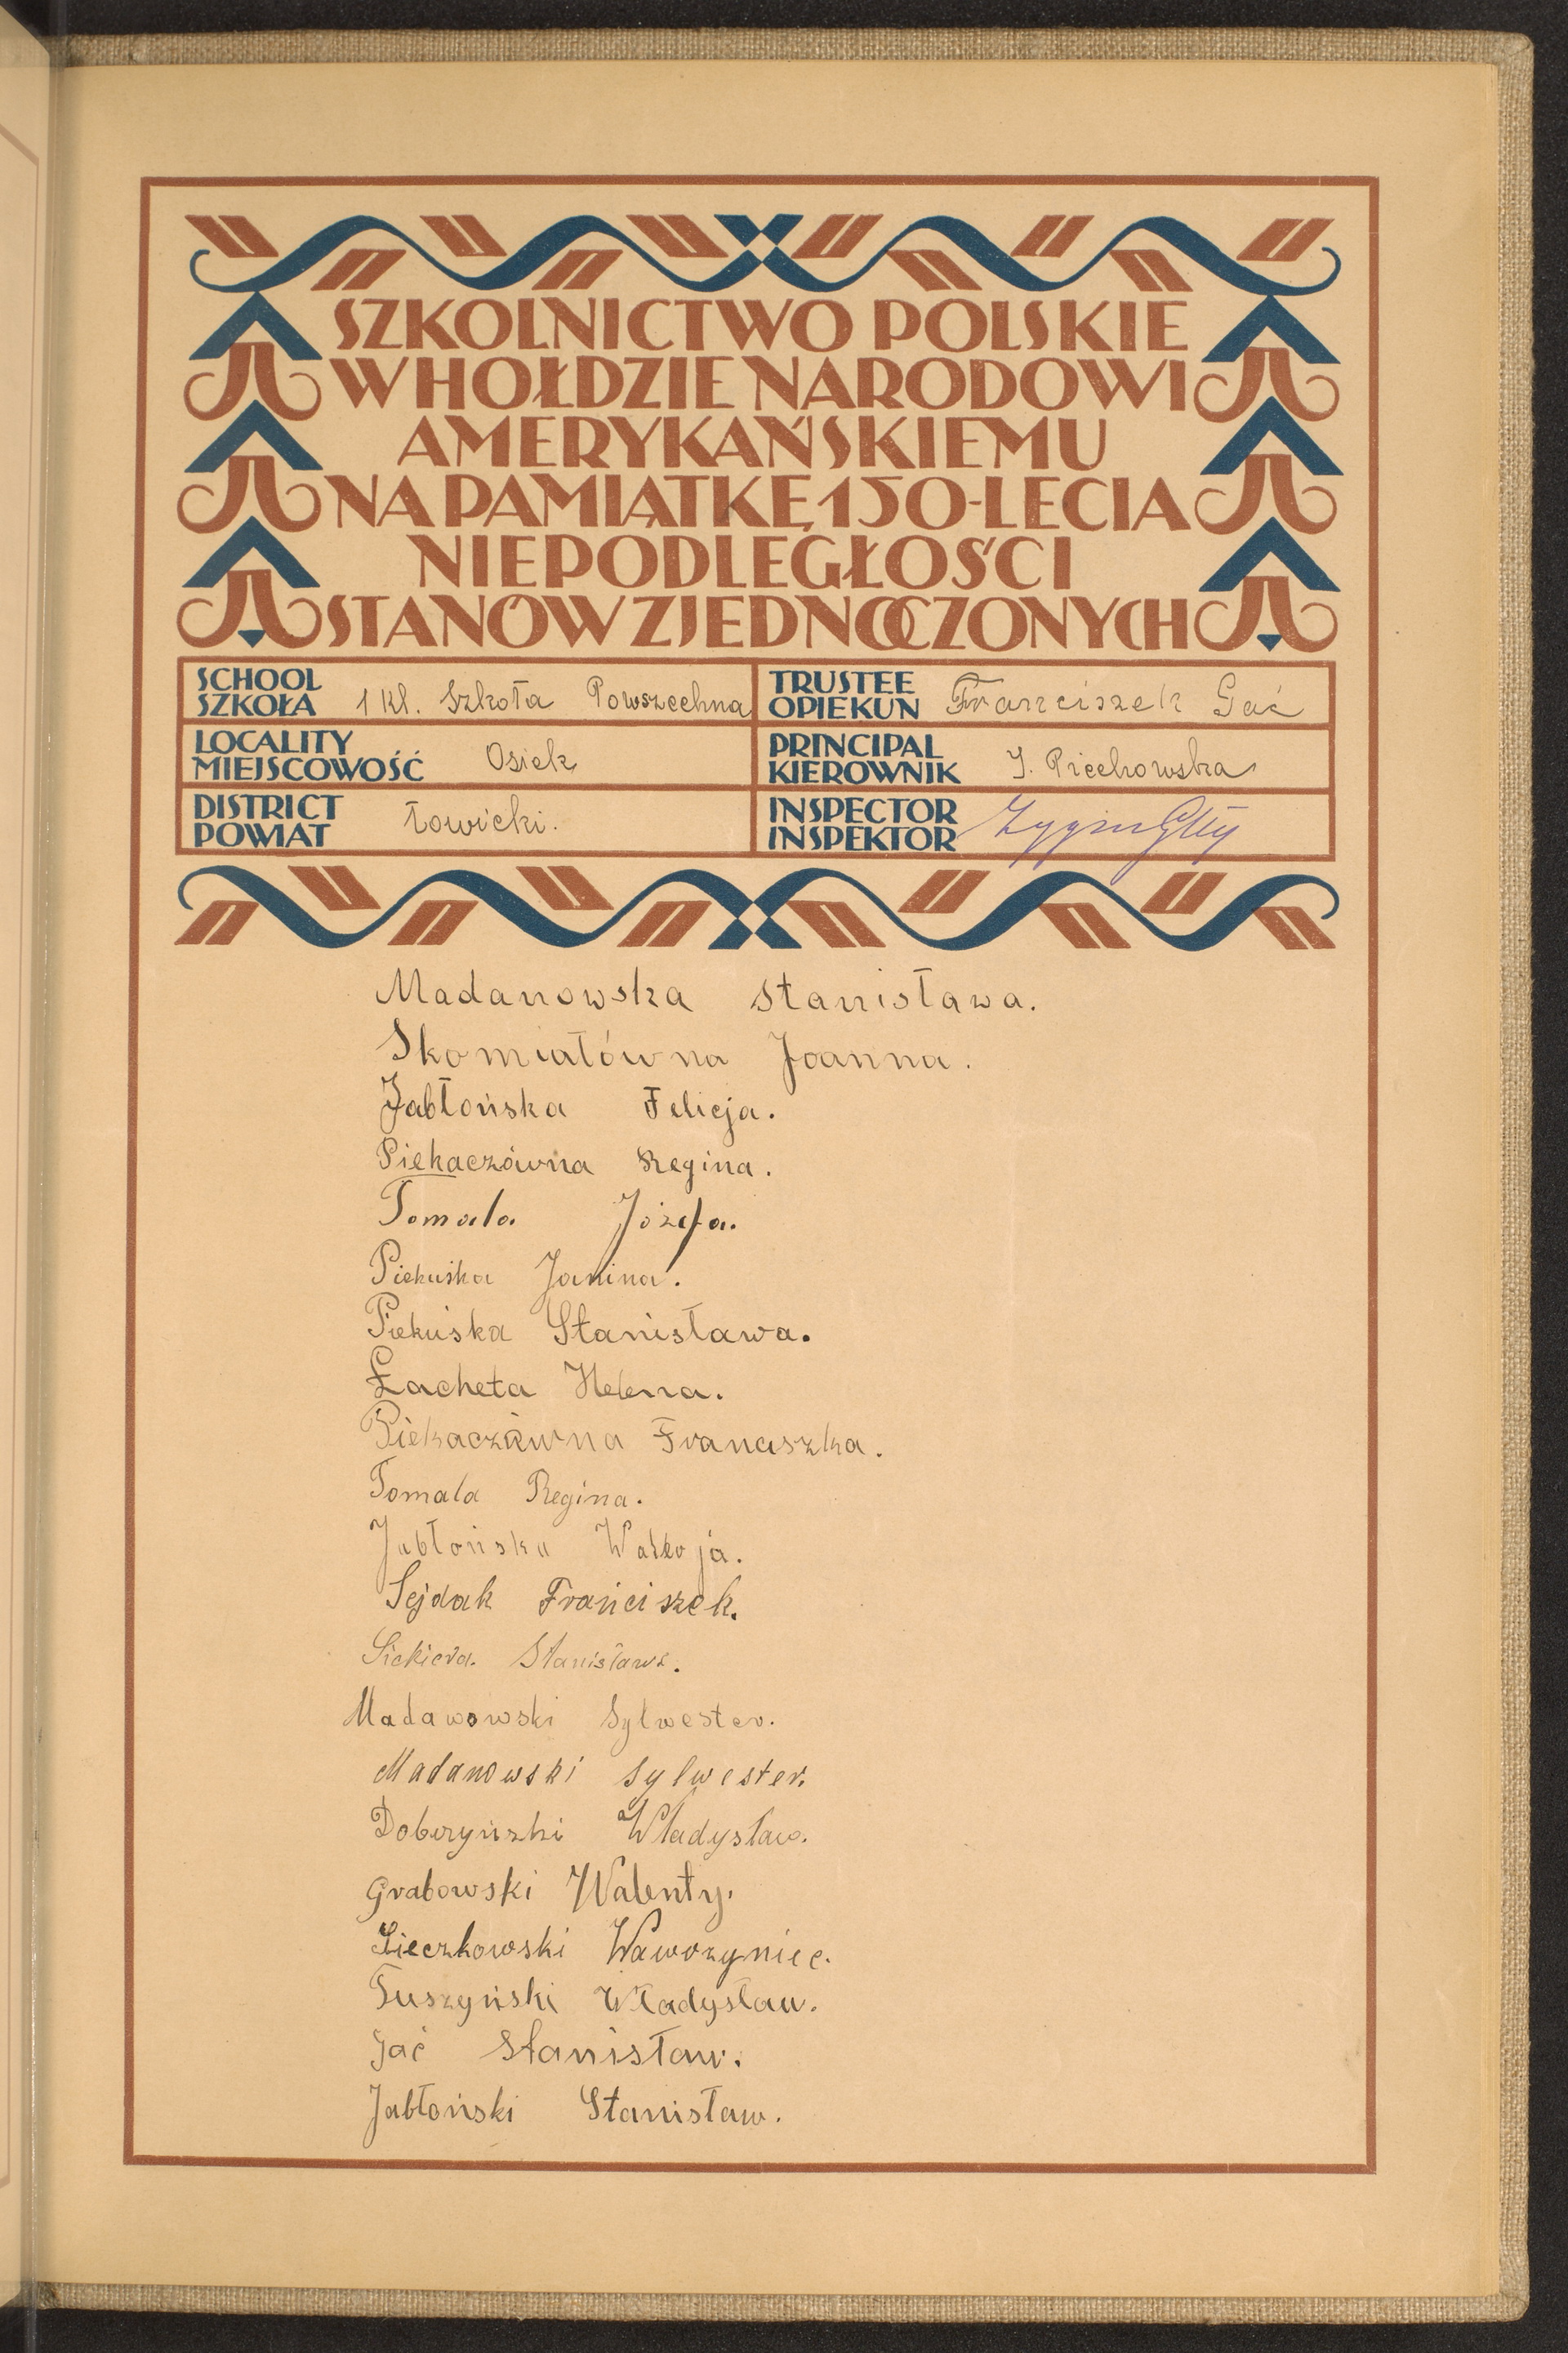 SZKOLNICTWO POLSKIE
W HOŁDZIE NARODOWI
AMERYKAŃSKIEMU
NA PAMIĄTKĘ 150-LECIA
NIEPODLEGŁOŚCI
STANÓW ZJEDNOCZONYCH
SCHOOL
SZKOŁA 1 Kl. Szkoła Powszechna
TRUSTEE
OPIEKUN Franciszek Gać
LOCALITY
MIEJSCOWOŚĆ Osiek
PRINCIPAL
KIEROWNIK J. Piechowska
DISTRICT
POWIAT Łowicki.
INSPECTOR
INSPEKTOR
Madanowska Stanisława.
Skomiałówna Joanna.
Jabłońska Felicja.
Piekaczówna Regina.
Tomala Józefa.
Piekuśka Janina.
Piekuśka Stanisława.
Łacheta Helena.
Piekaczówna Franciszka.
Tomala Regina.
Jabłońska
Sejdak Franciszek.
Siekiera. Stanisława.
Madawowski Sylwester.
Madanowski Sylwester.
Dobrzyński Władysław.
Grabowski Walenty.
Sieczkowski Wawrzyniec.
Tuszyński Władysław.
Gać Stanisław.
Jabłoński Stanisław.